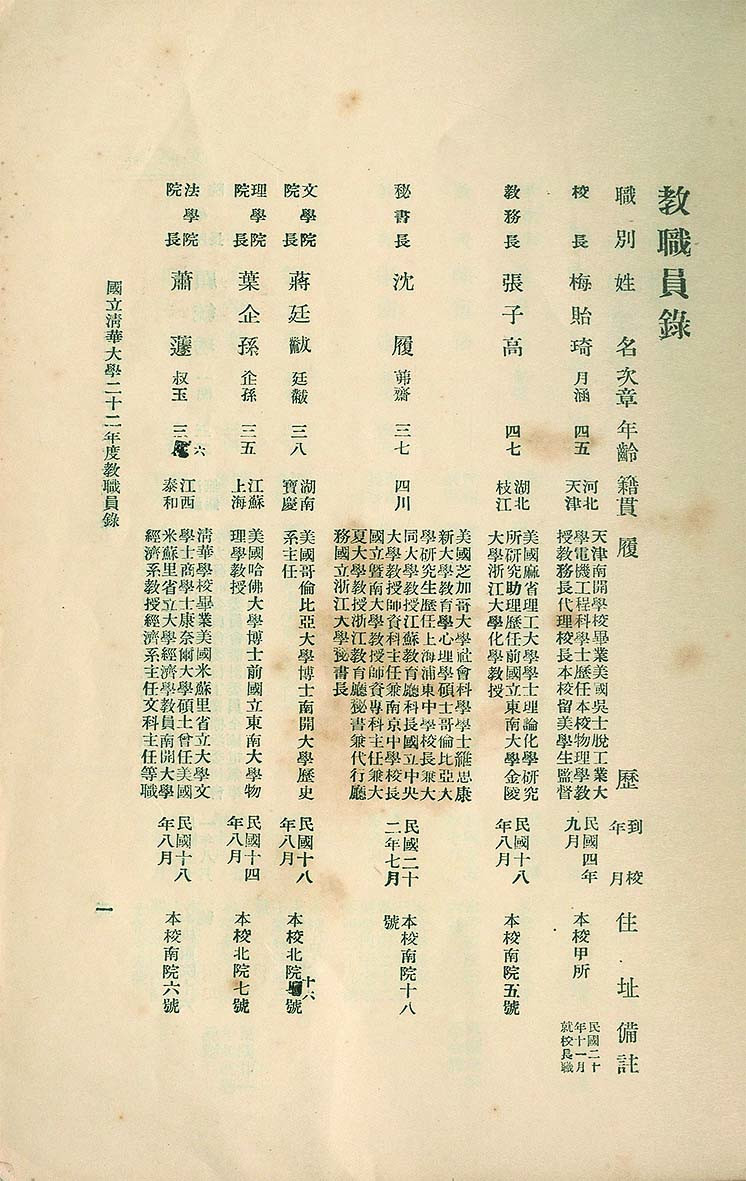 教職員錄
職別 姓名 次章 年齡 籍貫 履歷 到校年月 住址 備註
校長 梅貽琦 月涵 四五 河北天津 天津南開學校畢業美國吳士脫工業大
學電機工程科學士歷任本校物理學教
授教務長代理校長本校留美學生監督 民國四年九月 本校甲所 民國二十年十一月就校長職
教務長 張子高 四七 湖北枝江 美國麻省理工大學學士理論化學研究
所研究助理歷任前國立東南大學金陵
大學浙江大學化學教授 民國十八年八月 本校南院五號
秘書長 沈履 茀齋 三七 四川 美國芝加哥大學社會科學學士維思康
新大學教育學心理學碩士哥倫比亞大
學研究生歷任上海浦東中學校長兼大
同大學教授江蘇教育廳科長國立中央
大學教授師資科主任兼南京中學校長
國立暨南大學教授師資專科主任兼大
夏大學教授浙江教育廳秘書兼代行廳
務國立浙江大學秘書長 民國二十二年七月 本校南院十八號
文學院院長 蔣廷黻 廷黻 三八 湖南寶慶 美國哥倫比亞大學博士南開大學歷史
系主任 民國十八年八月 本校北院十六號
理學院院長 葉企孫 企孫 三五 江蘇上海 美國哈佛大學博士前國立東南大學物
理學教授 民國十四年八月 本校北院七號
法學院院長 蕭蘧 叔玉 三六 江西泰和 清華學校畢業美國米蘇里省立大學文
學士商學士康奈爾大學碩士曾任美國
米蘇里省立大學經濟學教員南開大學
經濟系教授經濟系主任文科主任等職 民國十八年八月 本校南院六號
國立清華大學二十二年度教職員錄
一